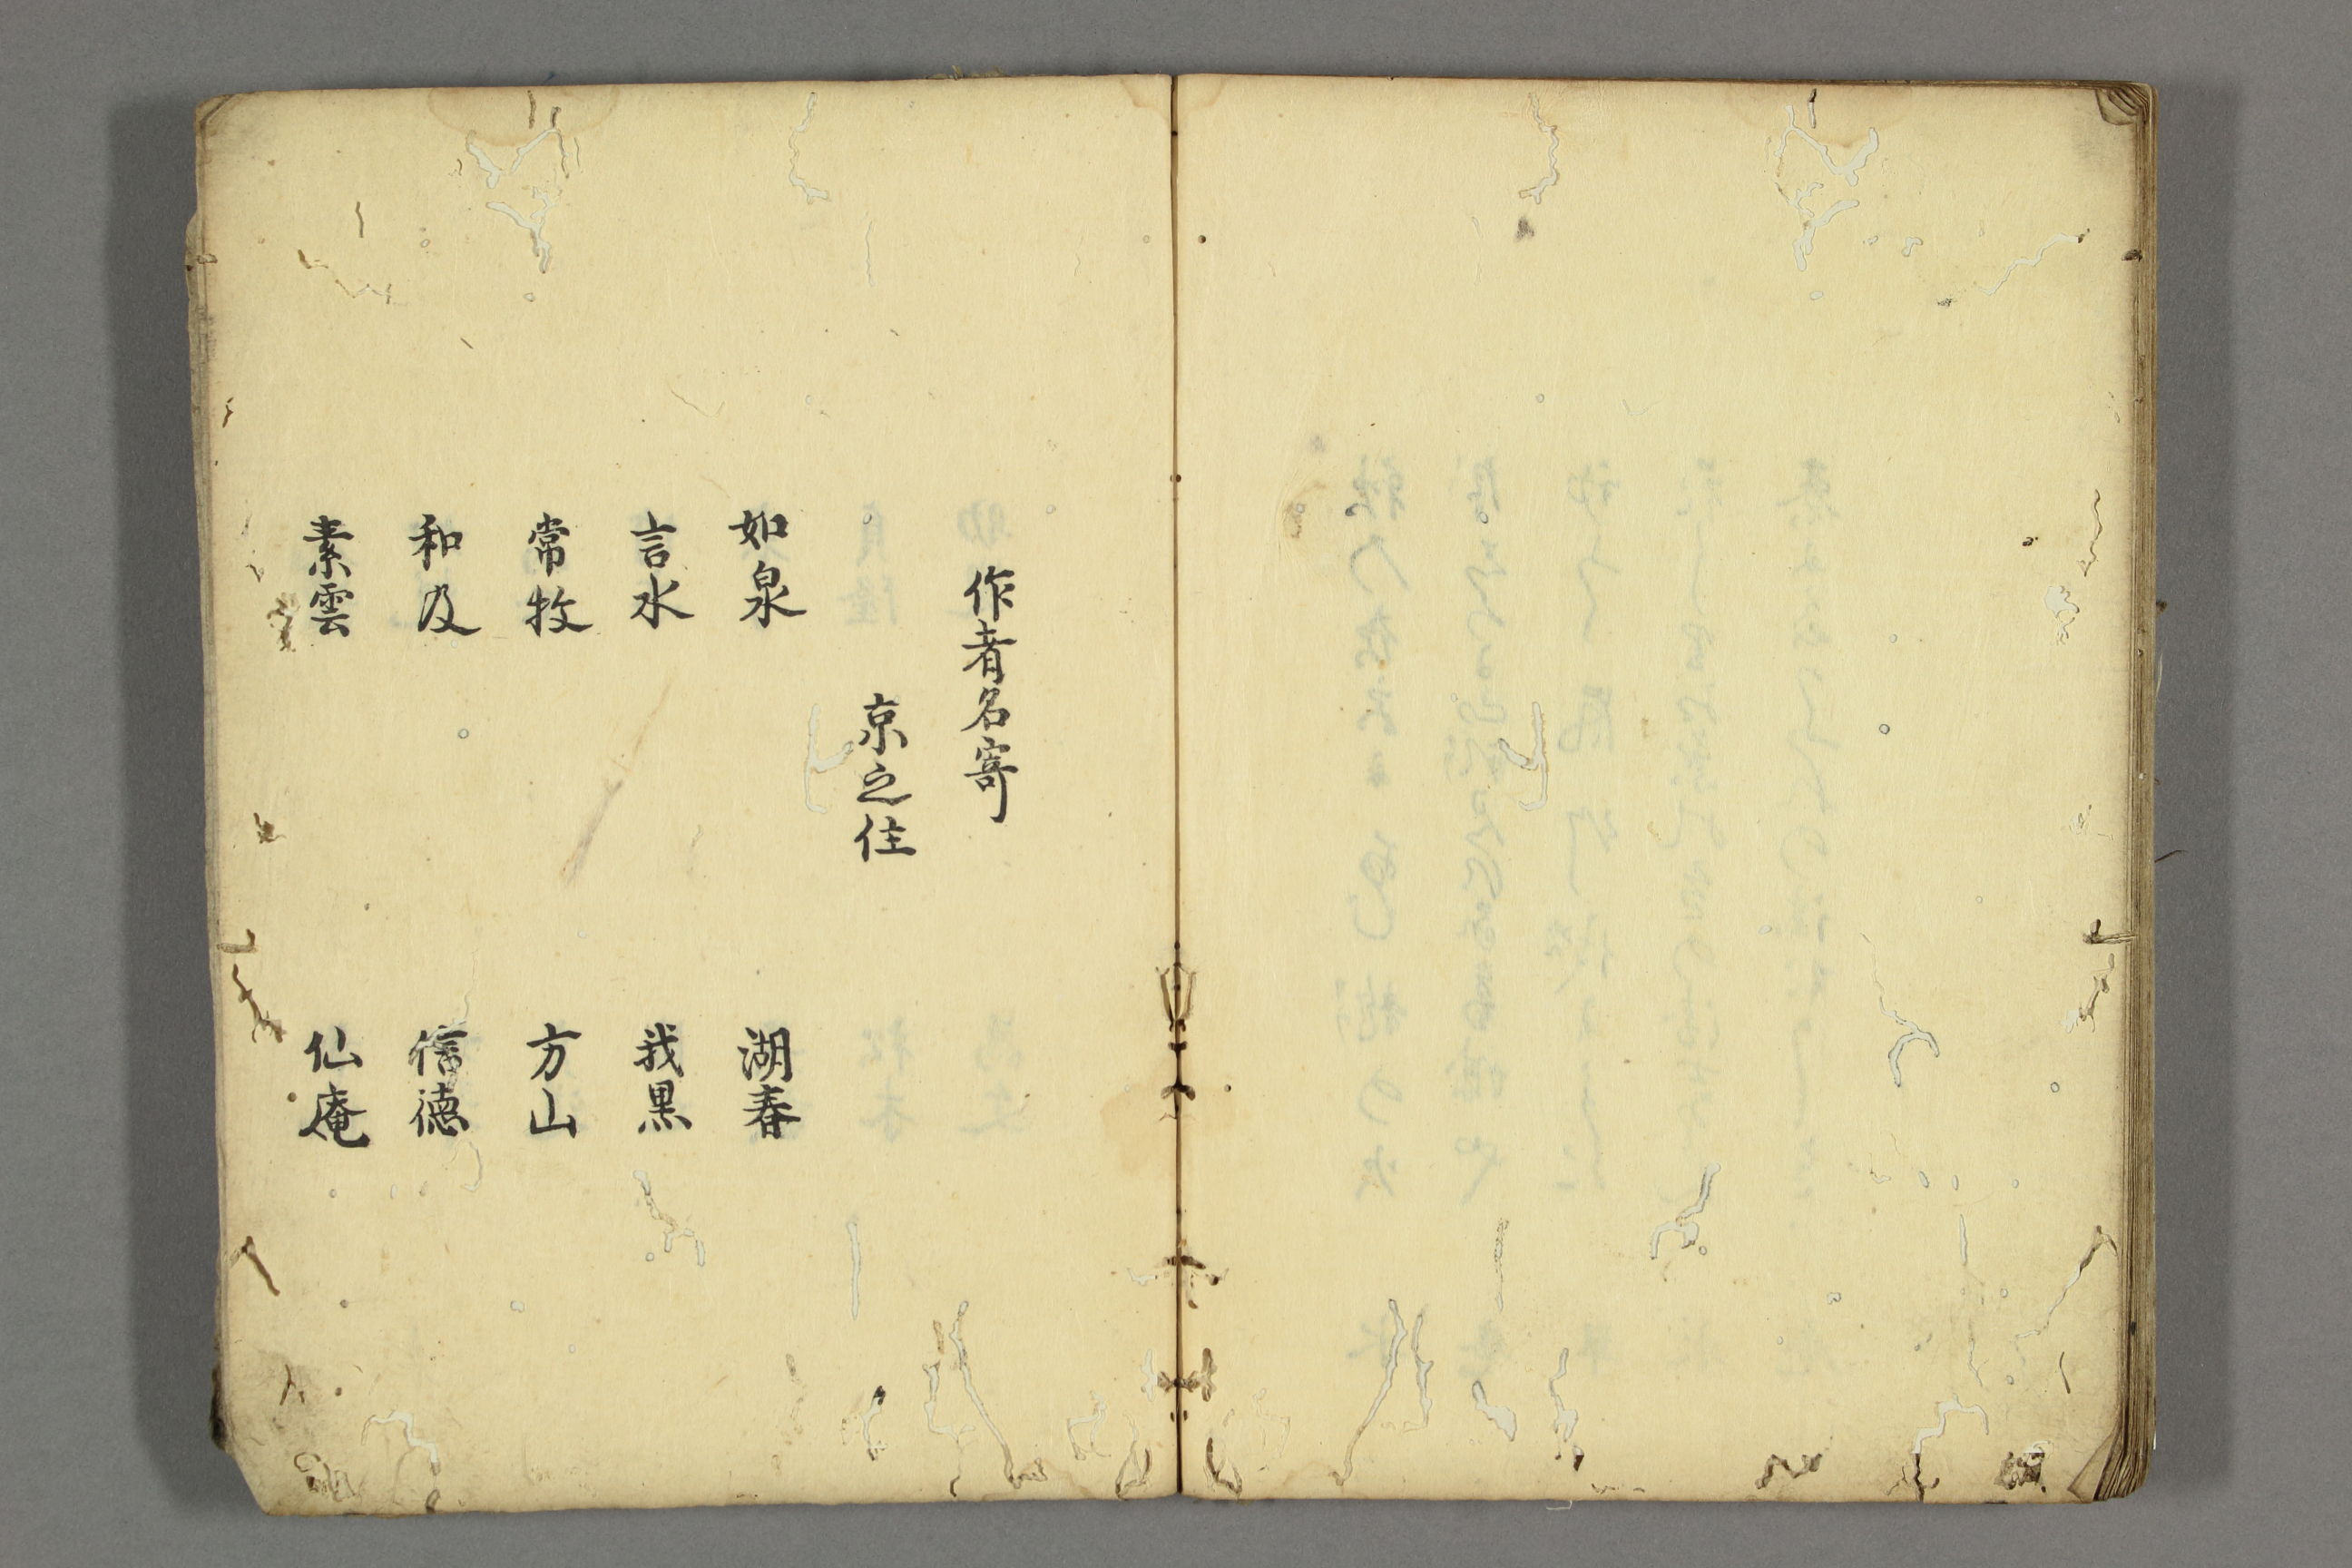 作者名寄
京之住
如泉
湖春
言水
我黒
常牧
方山
和及
信徳
素雲
仙庵